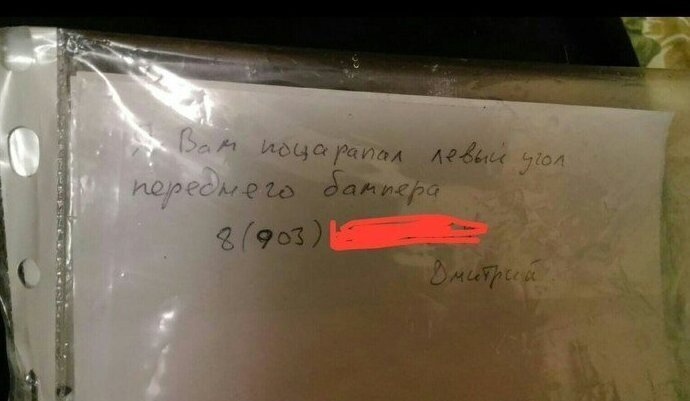 Я Вам поцарапал левый угол
переднего бампера
8(903)
Дмитрий